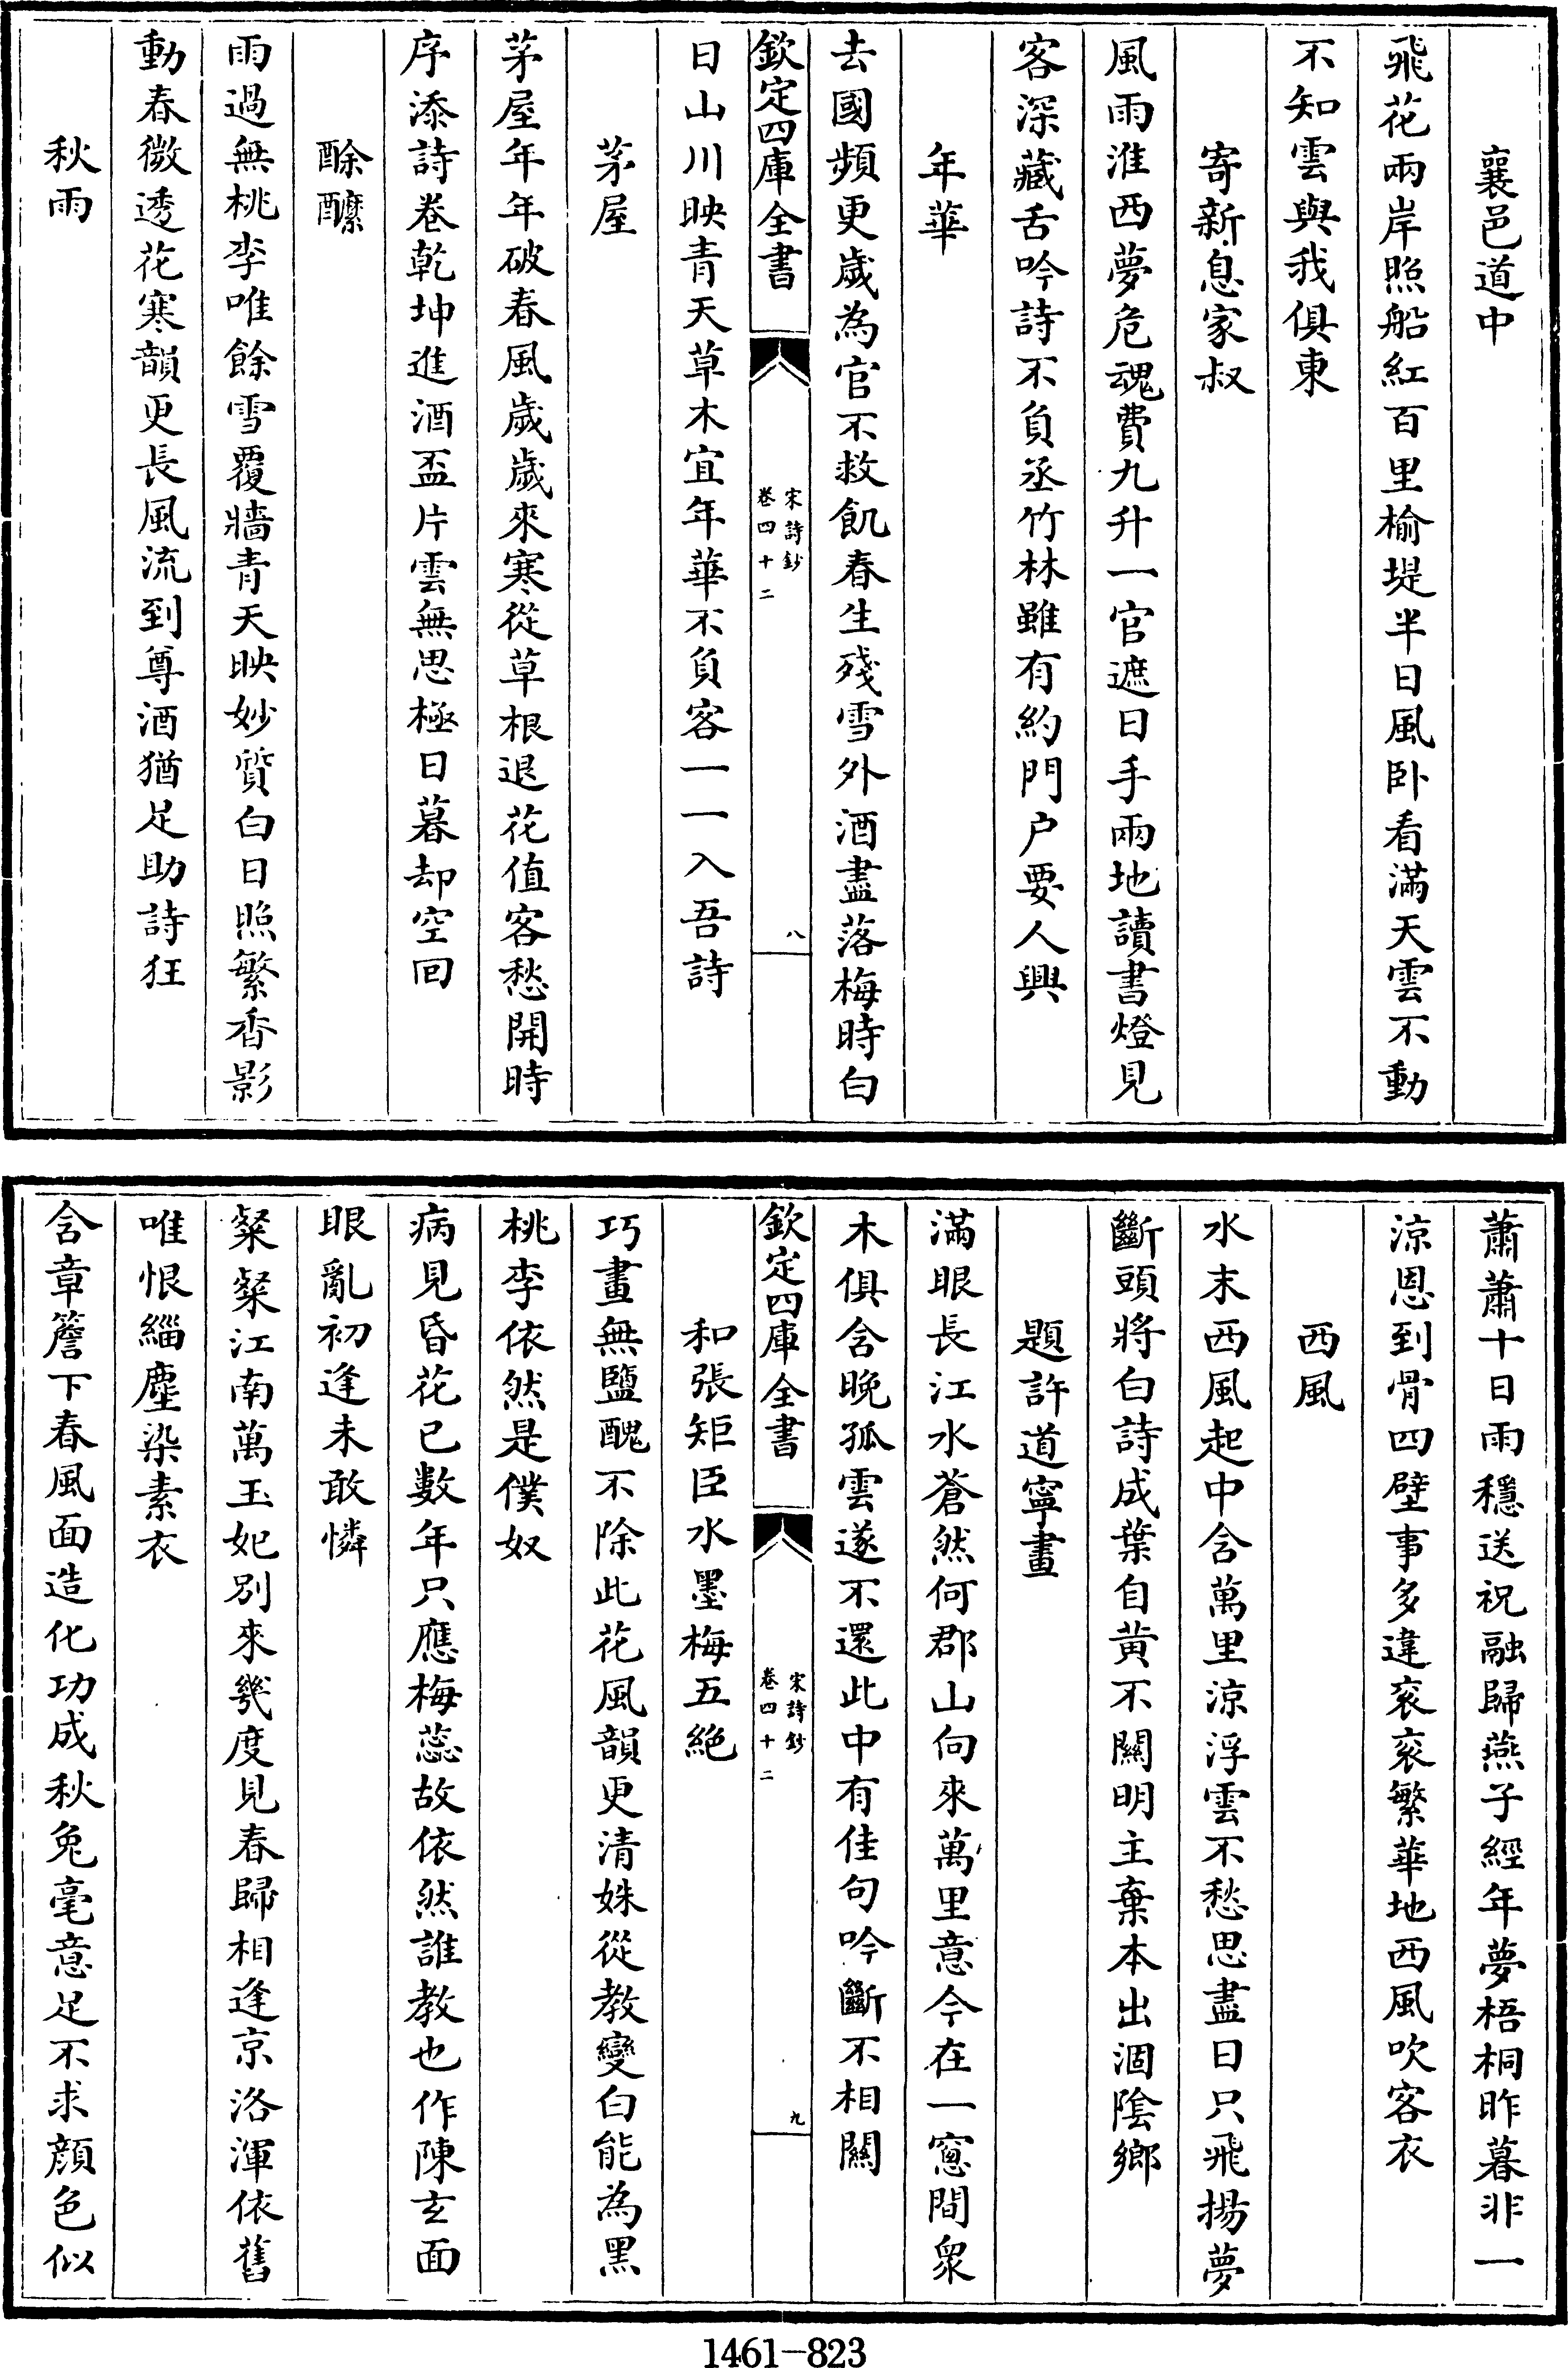 襄邑道中
飛花兩岸照船紅百里榆堤半日風卧看滿天雲不動
不知雲與我俱東
寄新息家叔
風雨淮西夢危魂費九升一官遮日手兩地讀書燈見
客深藏舌吟詩不負丞竹林雖有約門户要人興
年華
去國頻更歲為官不救飢春生殘雪外酒盡落梅時白
欽定四庫全書
宋詩鈔
卷四十二
八
日山川映青天草木宜年華不負客一一入吾詩
茅屋
茅屋年年破春風歲歲來寒從草根退花值客愁開時
序添詩卷乾坤進酒盃片雲無思極日暮却空回
酴醿
雨過無桃李唯餘雪覆牆青天映妙質白日照繁香影
動春微透花寒韻更長風流到尊酒猶足助詩狂
秋雨
蕭蕭十日雨穩送祝融歸燕子經年夢梧桐昨暮非一
涼恩到骨四壁事多違衮衮繁華地西風吹客衣
西風
水末西風起中含萬里涼浮雲不愁思盡日只飛揚夢
斷頭將白詩成葉自黄不關明主棄本出涸陰鄉
題許道寧畫
滿眼長江水蒼然何郡山向來萬里意今在一窻間衆
木俱含晚孤雲遂不還此中有佳句吟斷不相關
欽定四庫全書
宋詩鈔
卷四十二
九
和張矩臣水墨梅五絶
巧畫無鹽醜不除此花風韻更清姝從教變白能為黑
桃李依然是僕奴
病見昏花已數年只應梅蕊故依然誰教也作陳玄面
眼亂初逢未敢憐
粲粲江南萬玉妃别來幾度見春歸相逢京洛渾依舊
唯恨緇塵染素衣
含章簷下春風面造化功成秋兔毫意足不求顔色似
1461-823